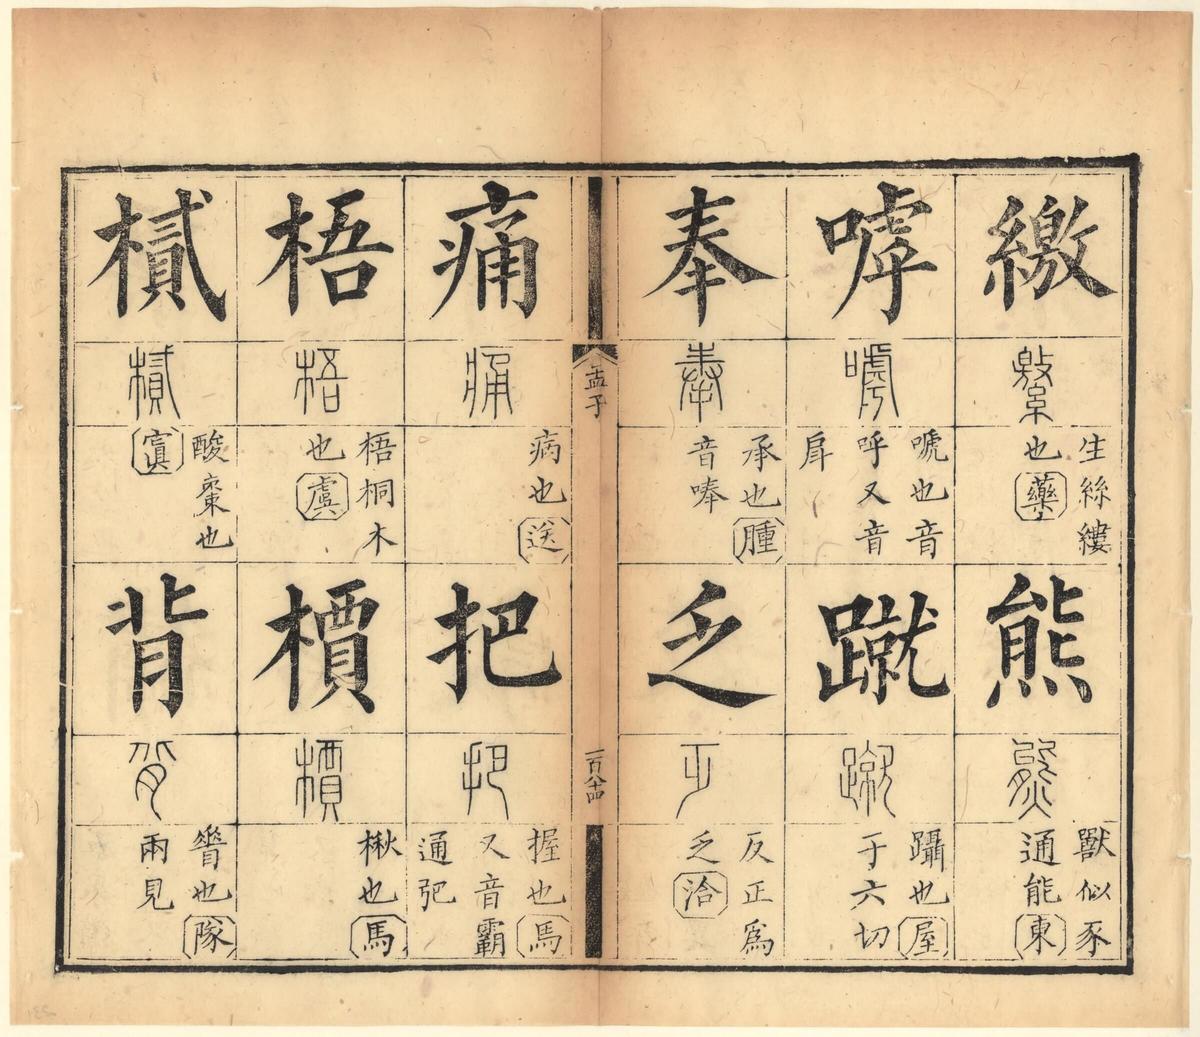 繳
繳
生絲縷
也藥
熊
熊
獸似豕
通能東
嘑
嘑
唬也音
呼又音
戽
蹴
蹴
躡也屋
于六切
奉
奉
承也腫
音唪
乏
乏
反正爲
乏洽
孟子
一百八十四
痛
痛
病也送
把
把
握也馬
又音霸
通弝
梧
梧
梧桐木
也虞
檟
檟
楸也馬
樲
樲
酸棗也
寘
背
背
脊也隊
兩見